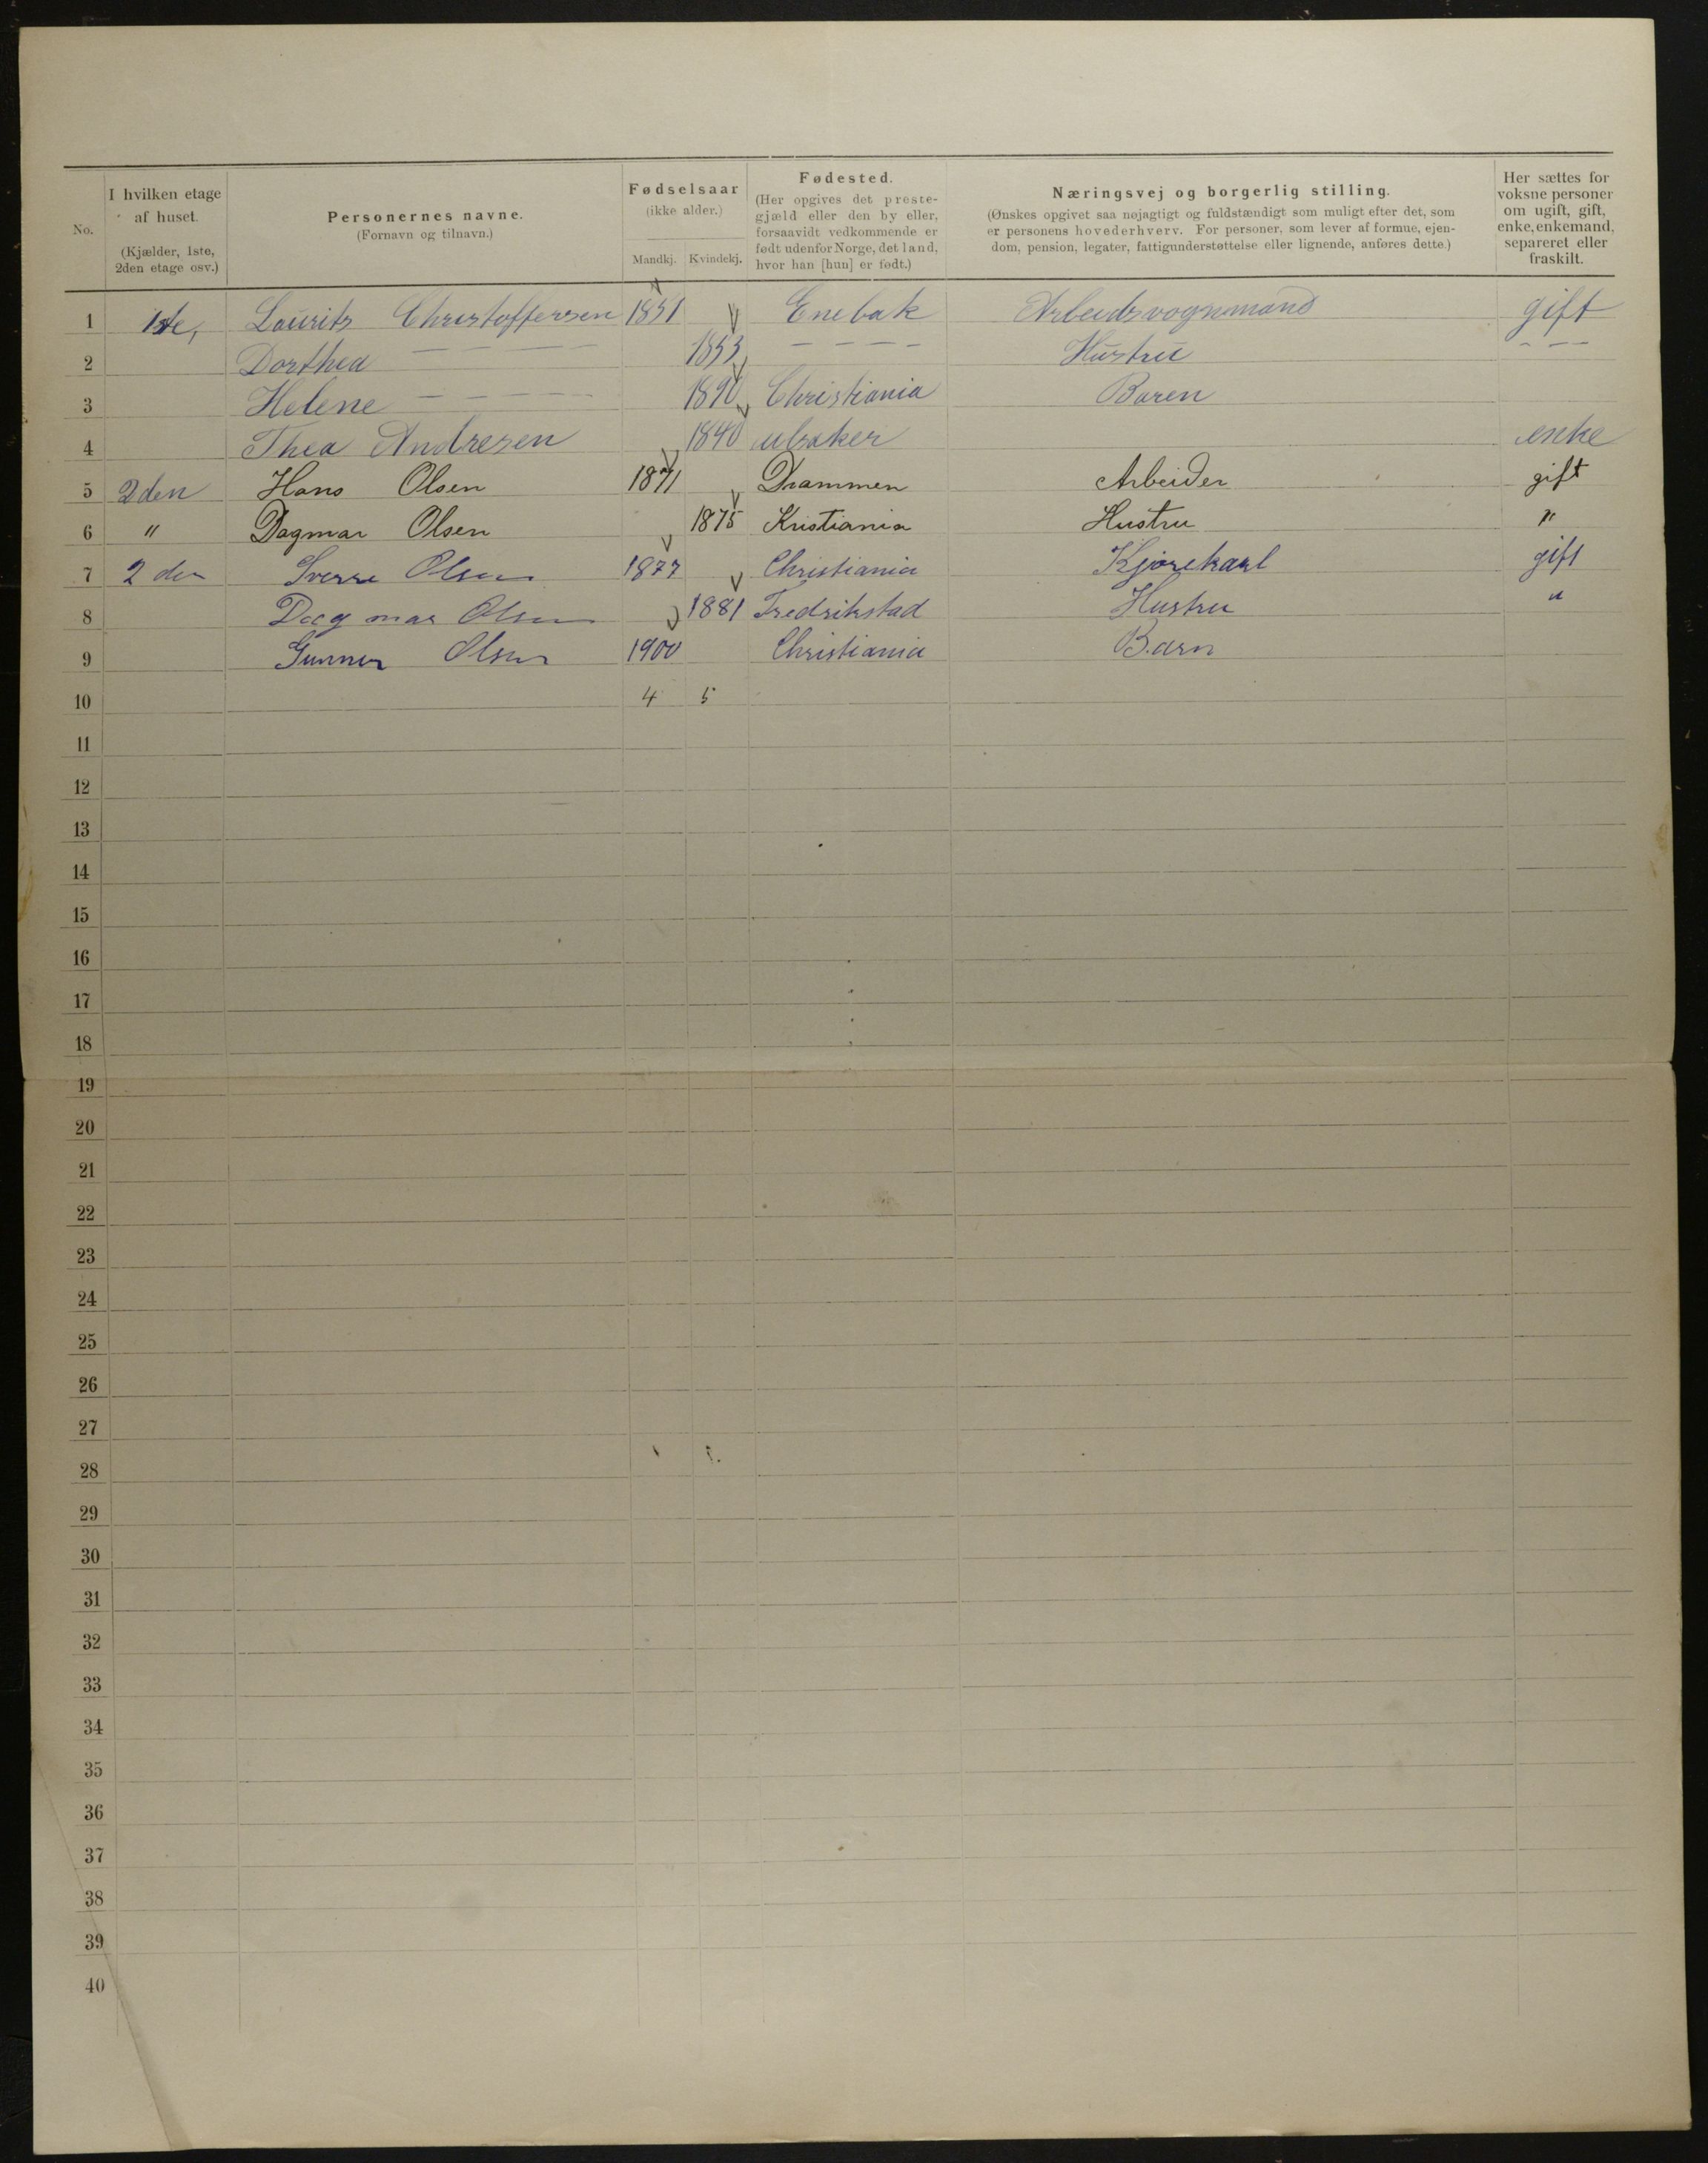 No.
I hvilken etage af huset. (Kjælder, 1ste, 2den etage osv.)
Personernes navne. (Fornavn og tilnavn.)
Fødselsaar (ikke alder.)
Mandkj. Kvindekj.
Fødested. (Her opgives det prestegjæld eller den by eller, forsaavidt vedkommende er født udenfor Norge, det land, hvor han [hun] er født.)
Næringsvej og borgerlig stilling.
(Ønskes opgivet saa nøjagtigt og fuldstændigt som muligt efter det, som er personens hovederhverv. For personer, som lever af formue, ejendom, pension, legater, fattigunderstøttelse eller lignende, anføres dette.)
Her sættes for voksne personer om ugift, gift, enke, enkemand, separeret eller fraskilt.
1 1ste, Laurits Christoffersen 1851 Enebak Arbeidsvognmand gift
2 Dorthea — — — — 1853 — — — — Hustru — — —
3 Helene — — — — 1890 Christiania Baren
4 Thea Andresen 1840 enke
5 2den Hans Olsen 1871 Drammen Arbeider gift
6 " Dagmar Olsen 1875 Kristiania Hustru "
7 2 den Sverre Olsen 1877 Christiania Kjørekarl gift
8 Dagmar Olsen 1881 Fredrikstad Hustru "
9 Gunner Olsen 1900 Christiania Barn
10 4 5
11
12
13
14
15
16
17
18
19
20
21
22
23
24
25
26
27
28
29
30
31
32
33
34
35
36
37
38
39
40